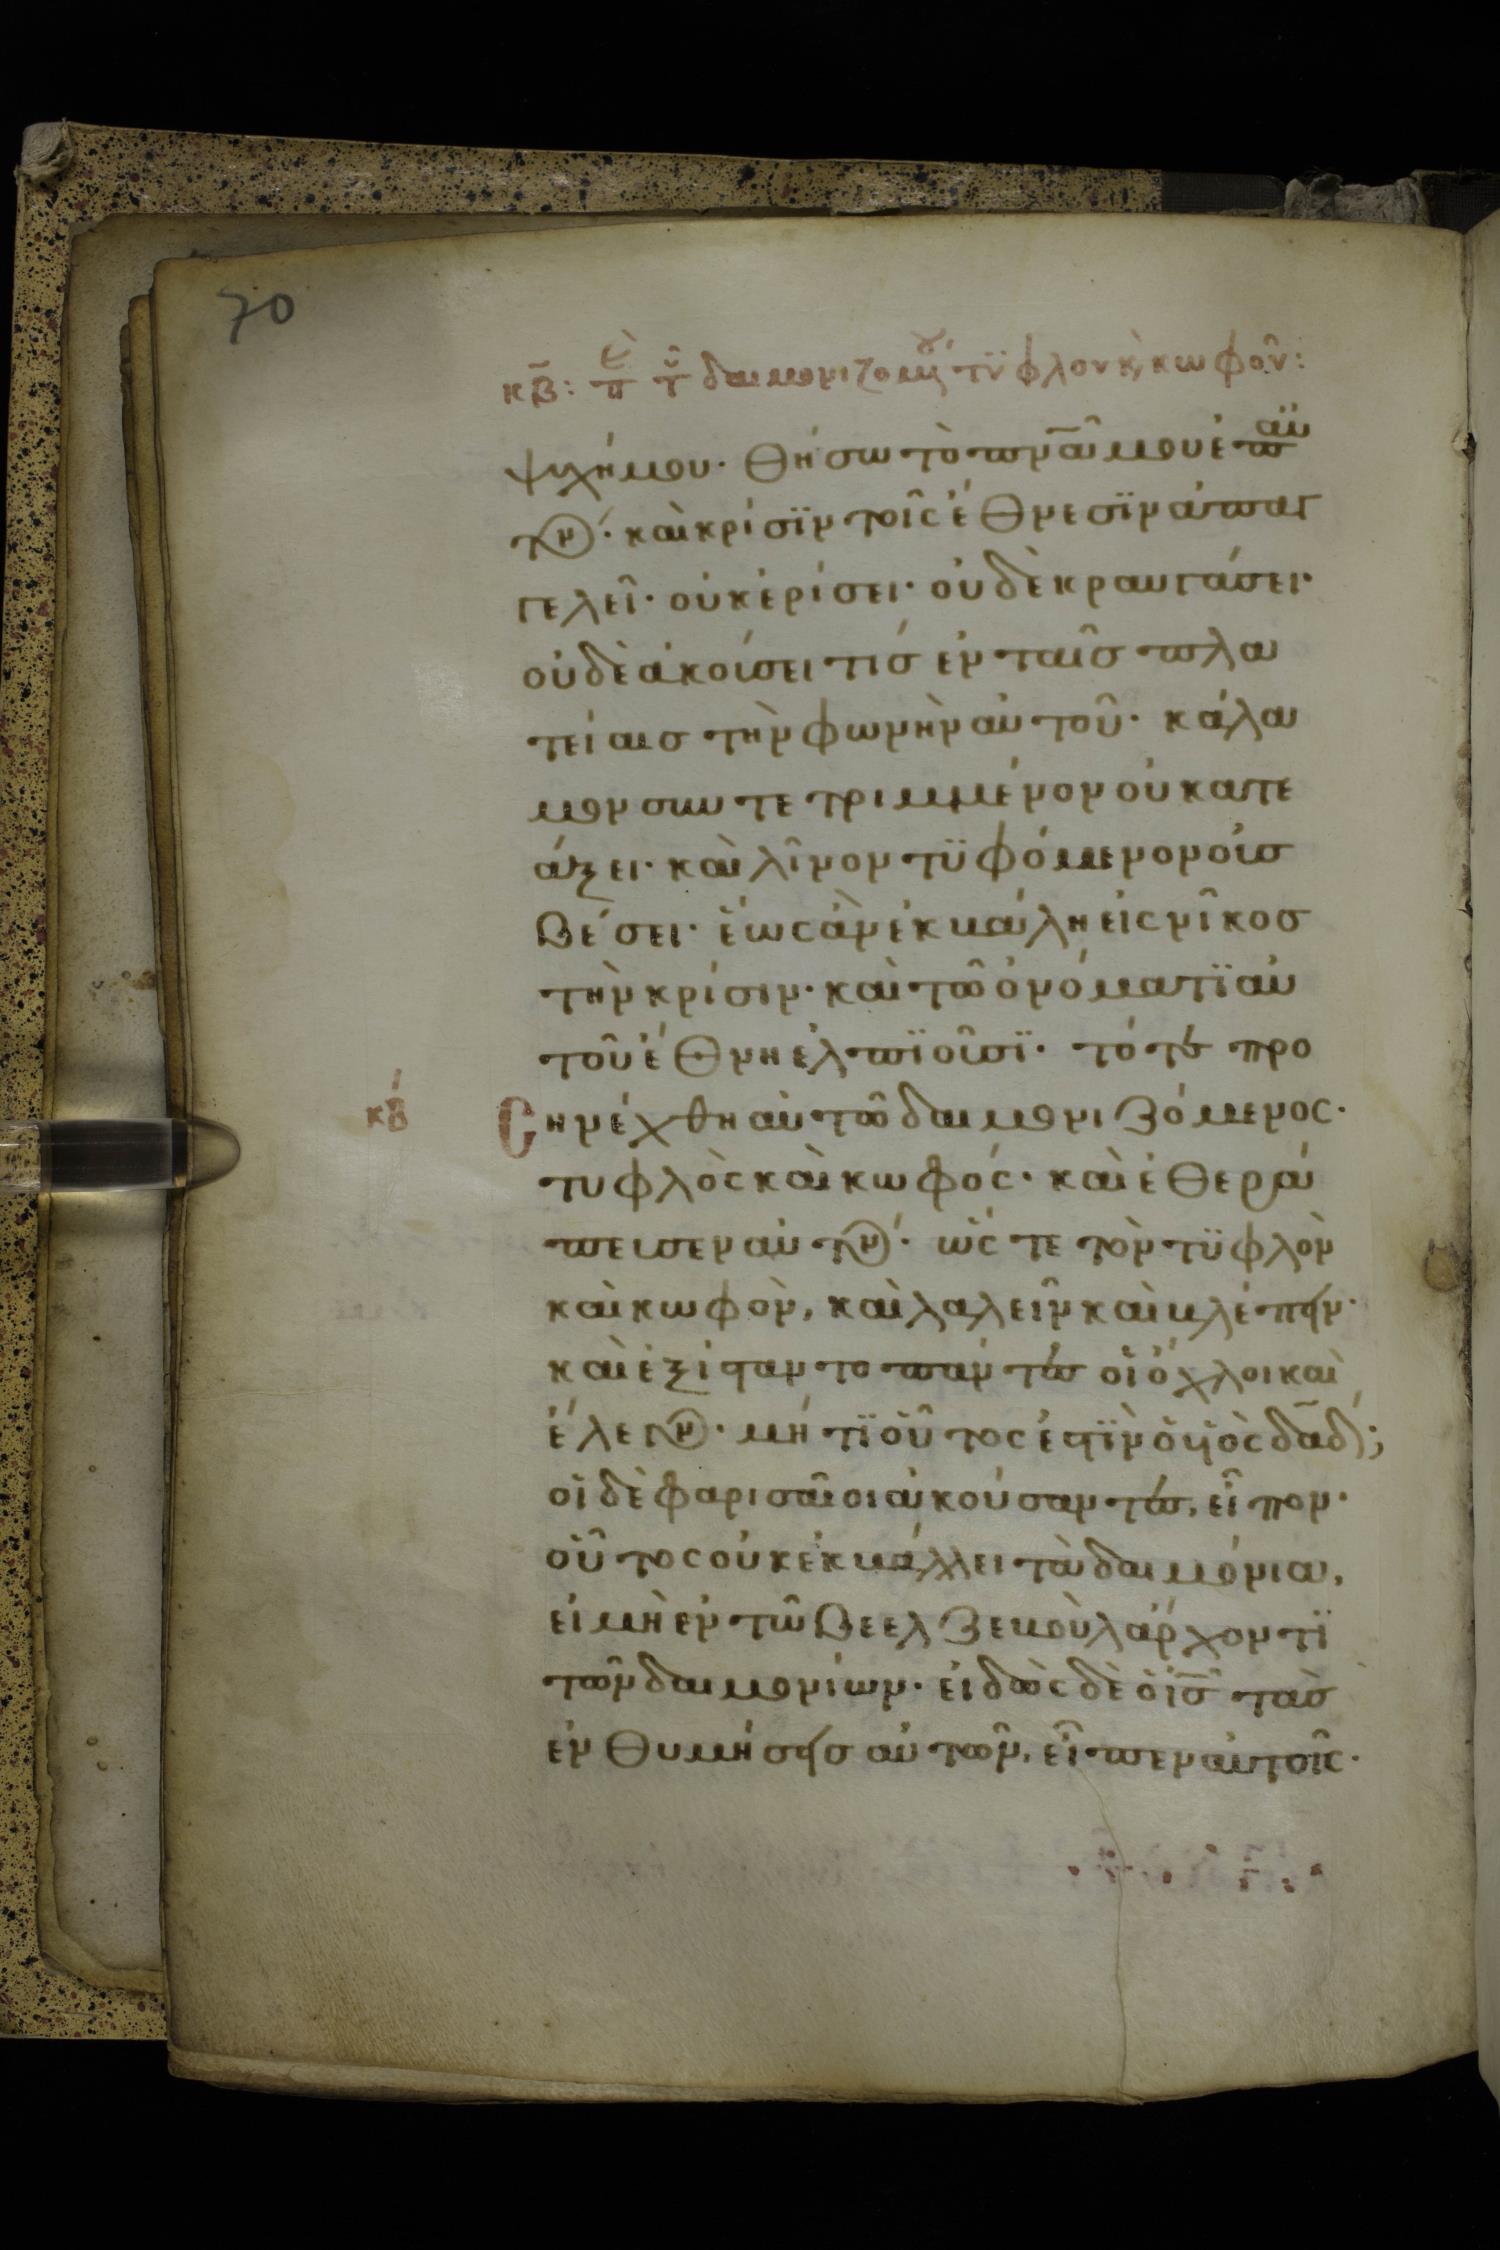 70
κβ: πε τ δαιμονιζομ τϋφλον κ, κωφον:
ψυχή μου· θήσω τὸ πνᾶ μου ἐπ αὐ
τόν· καὶ κρίσϊν τοῖς ἔθνεσϊν ἀπαγ
γελεῖ· οὐκ ἐρίσει· οὐδὲ κραυγάσει·
οὐδὲ ἀκούσει τίσ ἐν ταῖσ πλα
τείαισ τὴν φωνὴν αὐτοῦ· κάλα
μον συντετριμμένον οὐ κατε
άξει· καὶ λῖνον τϋφόμενον οὐσ
βέσει· ἕως ἂν ἐκβάλη εἰς νῖκοσ
τὴν κρίσιν· καὶ τῶ ὀνόματϊ αὐ
τοῦ ἔθνη ἐλπϊοῦσϊ· τότε προ
κβ
Σηνέχθη αὐτῶ δαιμονιζόμενος·
τυφλὸς καὶ κωφός· καὶ ἐθερά
πευσεν αὐτόν· ὥς τε τὸν τϋφλὸν
καὶ κωφὸν, καὶ λαλεῖν καὶ βλέπειν·
καὶ ἐξίσταντο πάντες οἱ ὄχλοι καὶ
ἔλεγον· μή τϊ οὗτος ἐστϊν ὁ υἱὸς δᾱδ;
οἱ δὲ φαρισαῖοι ἀκούσαντες, εἶπον·
οὗτος οὐκ ἐκβάλλει τὰ δαιμόνια,
εἰ μὴ ἐν τῶ βεελζεβοὺλ ἄρχοντϊ
τῶν δαιμονίων· εἰδὼς δὲ ὁ ἰσ τὰσ
ἐνθυμήσεισ αὐτῶν, εἶπεν αὐτοῖς·